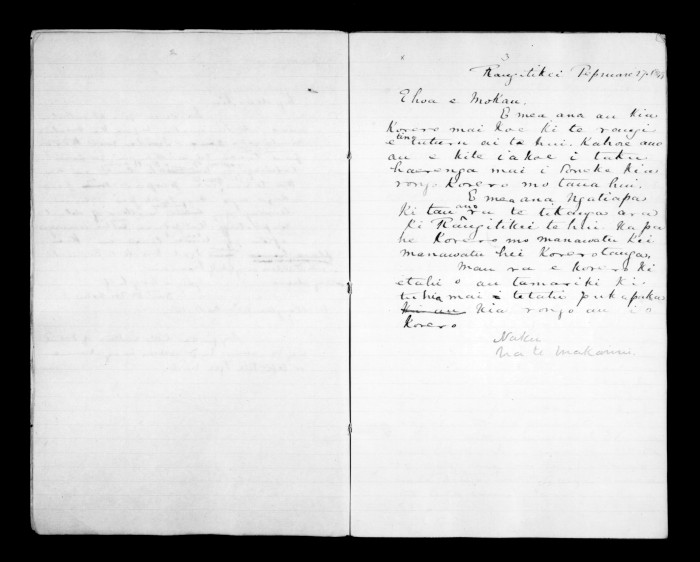 3
Rangitikei Pepuare 27
Ehoa e Mokau.
E mea ana au kia
korero mai koe ki te rangi
e tino tuturu ai te hui. Kahore ano
au e kite iakoe i taku
haerenga mai i Poneke kia
rongo korero mo taua hui.
E meaana Ngatiapa
Ki tau ano ru te tikanga ara
ki Rangitikei te hui. Kapu
he Korero mo manawatu kei
manawatu hei Korerotanga,
Mau ru e korero ki
etahi o au tamariki ki
tuhia mai i tetahi pukapuka
Ki au kia rongo au i o
Korero
Naku
Na te